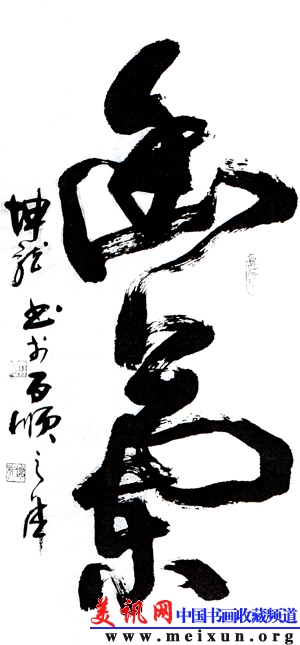 幽蘭
坤龍书于百順之
美讯网 中国书画收藏频道
www.meixun.org